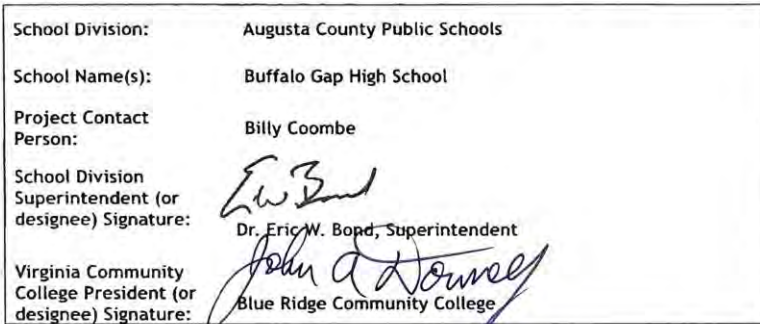 School Division: Augusta County Public Schools
School Name(s): Buffalo Gap High School
Project Contact
Person: Billy Coombe
School Division
Superintendent (or
designee) Signature:
Dr. Eric W. Bond, Superintendent
Virginia Community
College President (or
designee) Signature:
John A Downey
Blue Ridge Community College